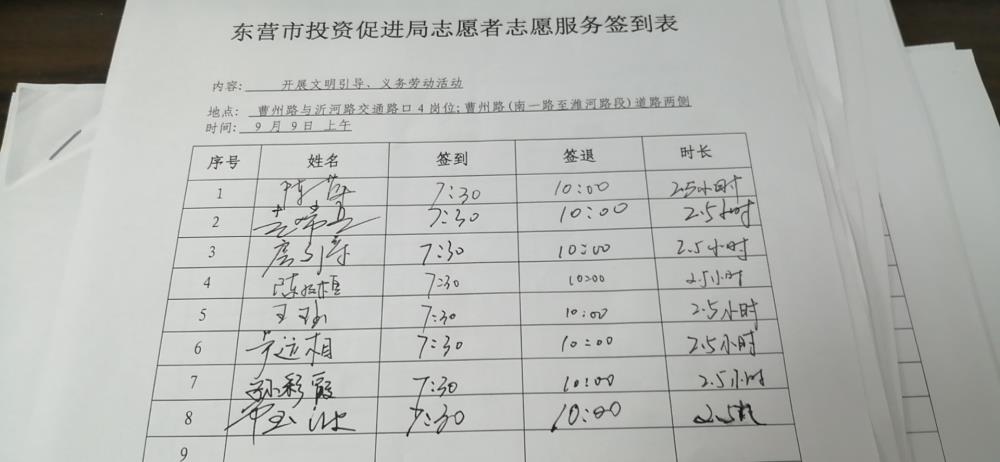 东营市投资促进局志愿者志愿服务签到表
内容: 开展文明引导、义务劳动活动
地点: 曹州路与沂河路交通路口4岗位;曹州路(南一路至潍河路段)道路两侧
时间: 9月9日上午
序号 姓名 签到 签退 时长
1 7:30 10:00 2.5小时
2 7:30 10:00 2.5小时
3 7:30 10:00 2.5小时
4 陈 7:30 10:00 2.5小时
5 王 7:30 10:00 2.5小时
6 7:30 10:00 2.5小时
7 孙彩霞 7:30 10:00 2.5小时
8 7:30 10:00 2.5
9